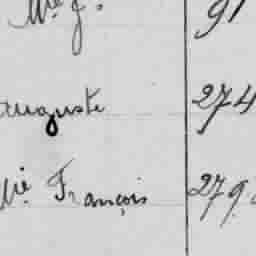 Mie J. 91
Auguste 274
Mie François 279